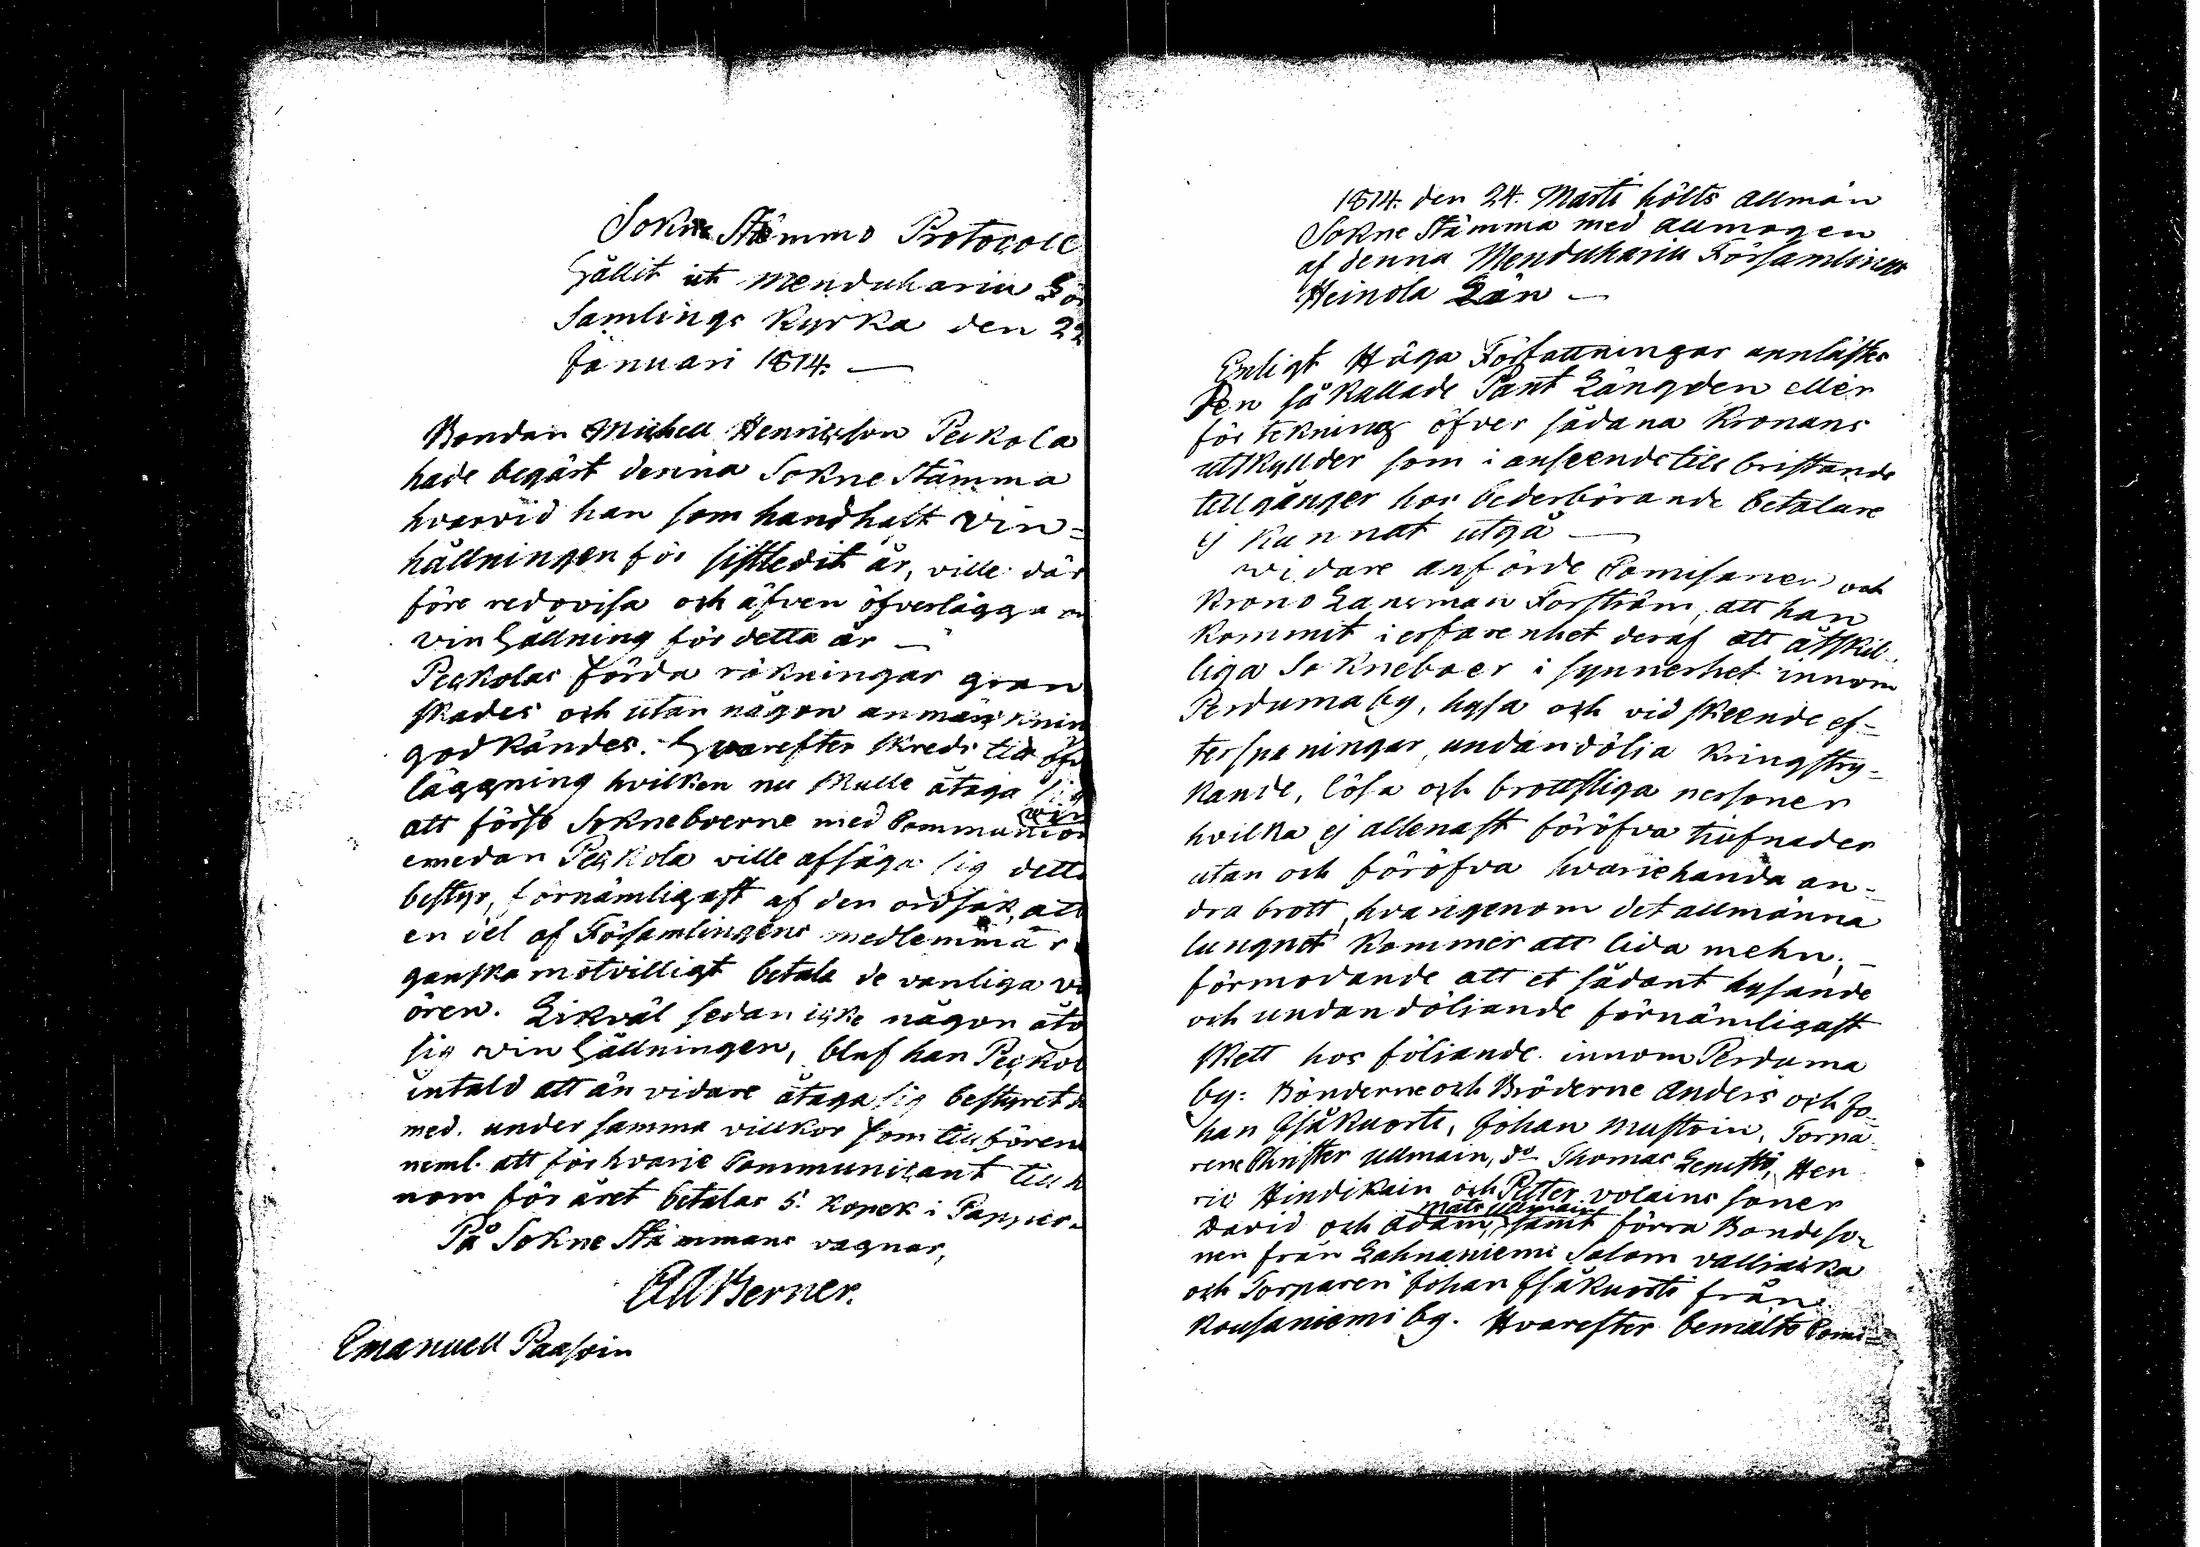 Sokne Stämmo Protocoll
hållit ut Menduharju För
samlings Kyrka den 22
Januari 1814. —
Bonden Michell Hennicson Peckola
hade begärt denna Sokne Stämma
hvarvid han som handhaft vin-
hållningen för sistledit år, ville där
före redovisa och äfven öfverlägga
vinhållning för detta år —
Peckolas förda räkningar gran
skades och utan någon anmärcknin
godkändes. Hvarefter skreds till öfv
läggning hvilken nu skulle åtaga sig
att förse Sokneboerne med Communion
vin
emedan Peckola ville afsäga sig detta
bestyr, förnämligast af den ordsak, att
en del af Församlingens medlemmar
ganska motvilligt betala de vanliga vi
ören. Likväl sedan icke någon åto
sig vinhållningen, blef han Peckol
intald att än vidare åtaga sig bestyret
med. under samma villkor som tillförene
neml. att för hvarje Communicant
nom för året betalas 5. Kopek i Papper
På Sokne Stämmans vägnar,
AdBerner.
Emanuell Paasoin
1814. den 24. Marti hölts Allmän
Sokne Stämma med Allmogen
af denna Menduharju Församling
Heinola Län —
Enligt Höga Författningar upplästes
Den så kallade Pant Längden eller
förtekning öfver sådana Kronans
utskyllder som i anseende till bristande
tillgånger hos vederbörande betalare
ej kunnat utgå —
vidare anförde Comisarien och
Krono Länsman Forström, att han
kommit i erfarenhet deraf att åtskil-
liga Sokneboer i synnerhet innom
Perduma by, hysa och vid skeende ef-
terspaningar, undandölja kringstry-
kande, lösa och brottsliga personer
hvilka ej allenast föröfva tiufnader
utan och föröfva hvariehanda an-
dra brott, hvarigenom det allmänna
lungnet kommer att lida mehn; —
förmodande att et sådant hysande
och undandöliande förnämligast
skett hos följande innom Perduma
by: Bönderne och Bröderne Anders och Jo-
han Jsåkuorti, Johan Mustoin, Torpa
rene Christer Ullmain, do Thomas Hen
ric Hindikain och Petter volains söner
Mats Ullmain
David och Adam, samt förra Bondeso-
nen från Lahnaniemi Salom valliaska
och Torparen Johan Jsåkuorti från
Kousaniemi by. Hvarefter bemälte Comi-